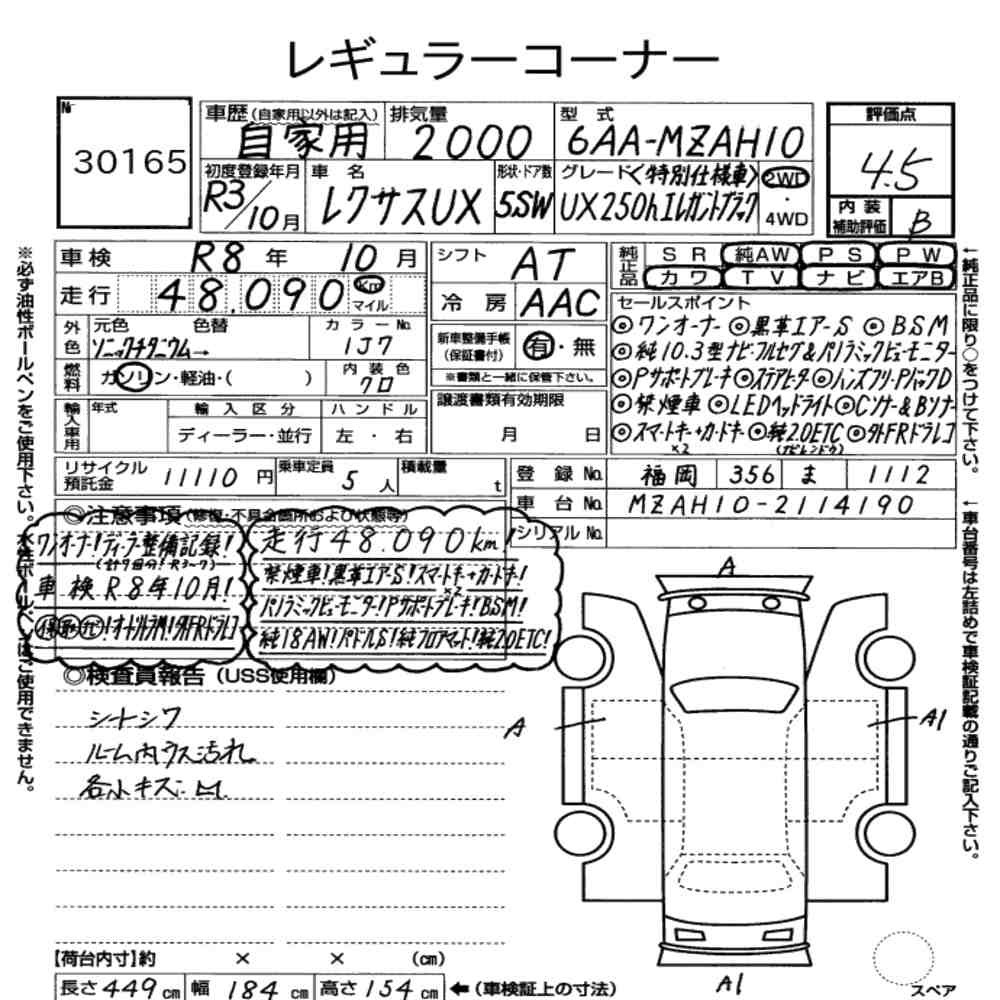 レギュラーコーナー
№ 30165
車歴(自家用以外は記入) 自家用
排気量 2000
型式 6AA-MZAH10
評価点 4.5
初度登録年月 R3/10月
車名 レクサスUX
形状・ドア数 5SW
グレード<特別仕様車>
UX250hエレガントブラック
2WD・4WD
内装補助評価 B
車検 R8年 10月
シフト AT
純正品 SR 純AW PS PW
カワ TV ナビ エアB
走行 48.090 km マイル
冷房 AAC
セールスポイント
◎ワンオーナー ◎黒革エアーS ◎BSM
◎純10.3型ナビ・フルセグ&パノラミックビューモニター
◎Pサポートブレーキ◎ステアヒーター◎ハンズフリーPバックD
◎禁煙車 ◎LEDヘッドライト◎Cソナー&Bソナー
◎スマートキー+カードキー◎純2.0ETC ◎外FRドラレコ
×2
外色 元色 色替 カラーNo.
ソニックチタニウム→ 1J7
新車整備手帳(保証書付) 有・無
※書類と一緒に保管下さい。
燃料 ガソリン・軽油・( )
内装色 クロ
譲渡書類有効期限
月 日
輸入車用 年式 輸入区分 ハンドル
ディーラー・並行 左・右
リサイクル預託金 11110円
乗車定員 5人
積載量 t
登録No. 福岡 356 ま 1112
車台No. MZAH10-2114190
シリアルNo.
◎注意事項(修復・不具合箇所および状態等)
ワンオーナー!ディーラー整備記録!
車検R8年10月!
走行48.090km!
禁煙車!黒革エアーS!スマートキー+カードキー!
×2
パノラミックビューモニター!Pサポートブレーキ!BSM!
純18AW!パドルS!純フロアマット!純2.0ETC!
◎検査員報告(USS使用欄)
シートシワ
ルーム内ウス汚れ
各小キズ
A
A
A1
A1
スペア
【荷台内寸】約 × × (cm)
長さ449cm 幅184cm 高さ154cm ←(車検証上の寸法)
※必ず油性ボールペンをご使用下さい。水性ボールペンはご使用できません。
←純正品に限り○をつけて下さい。
←車台番号は左詰めで車検証記載の通りご記入下さい。